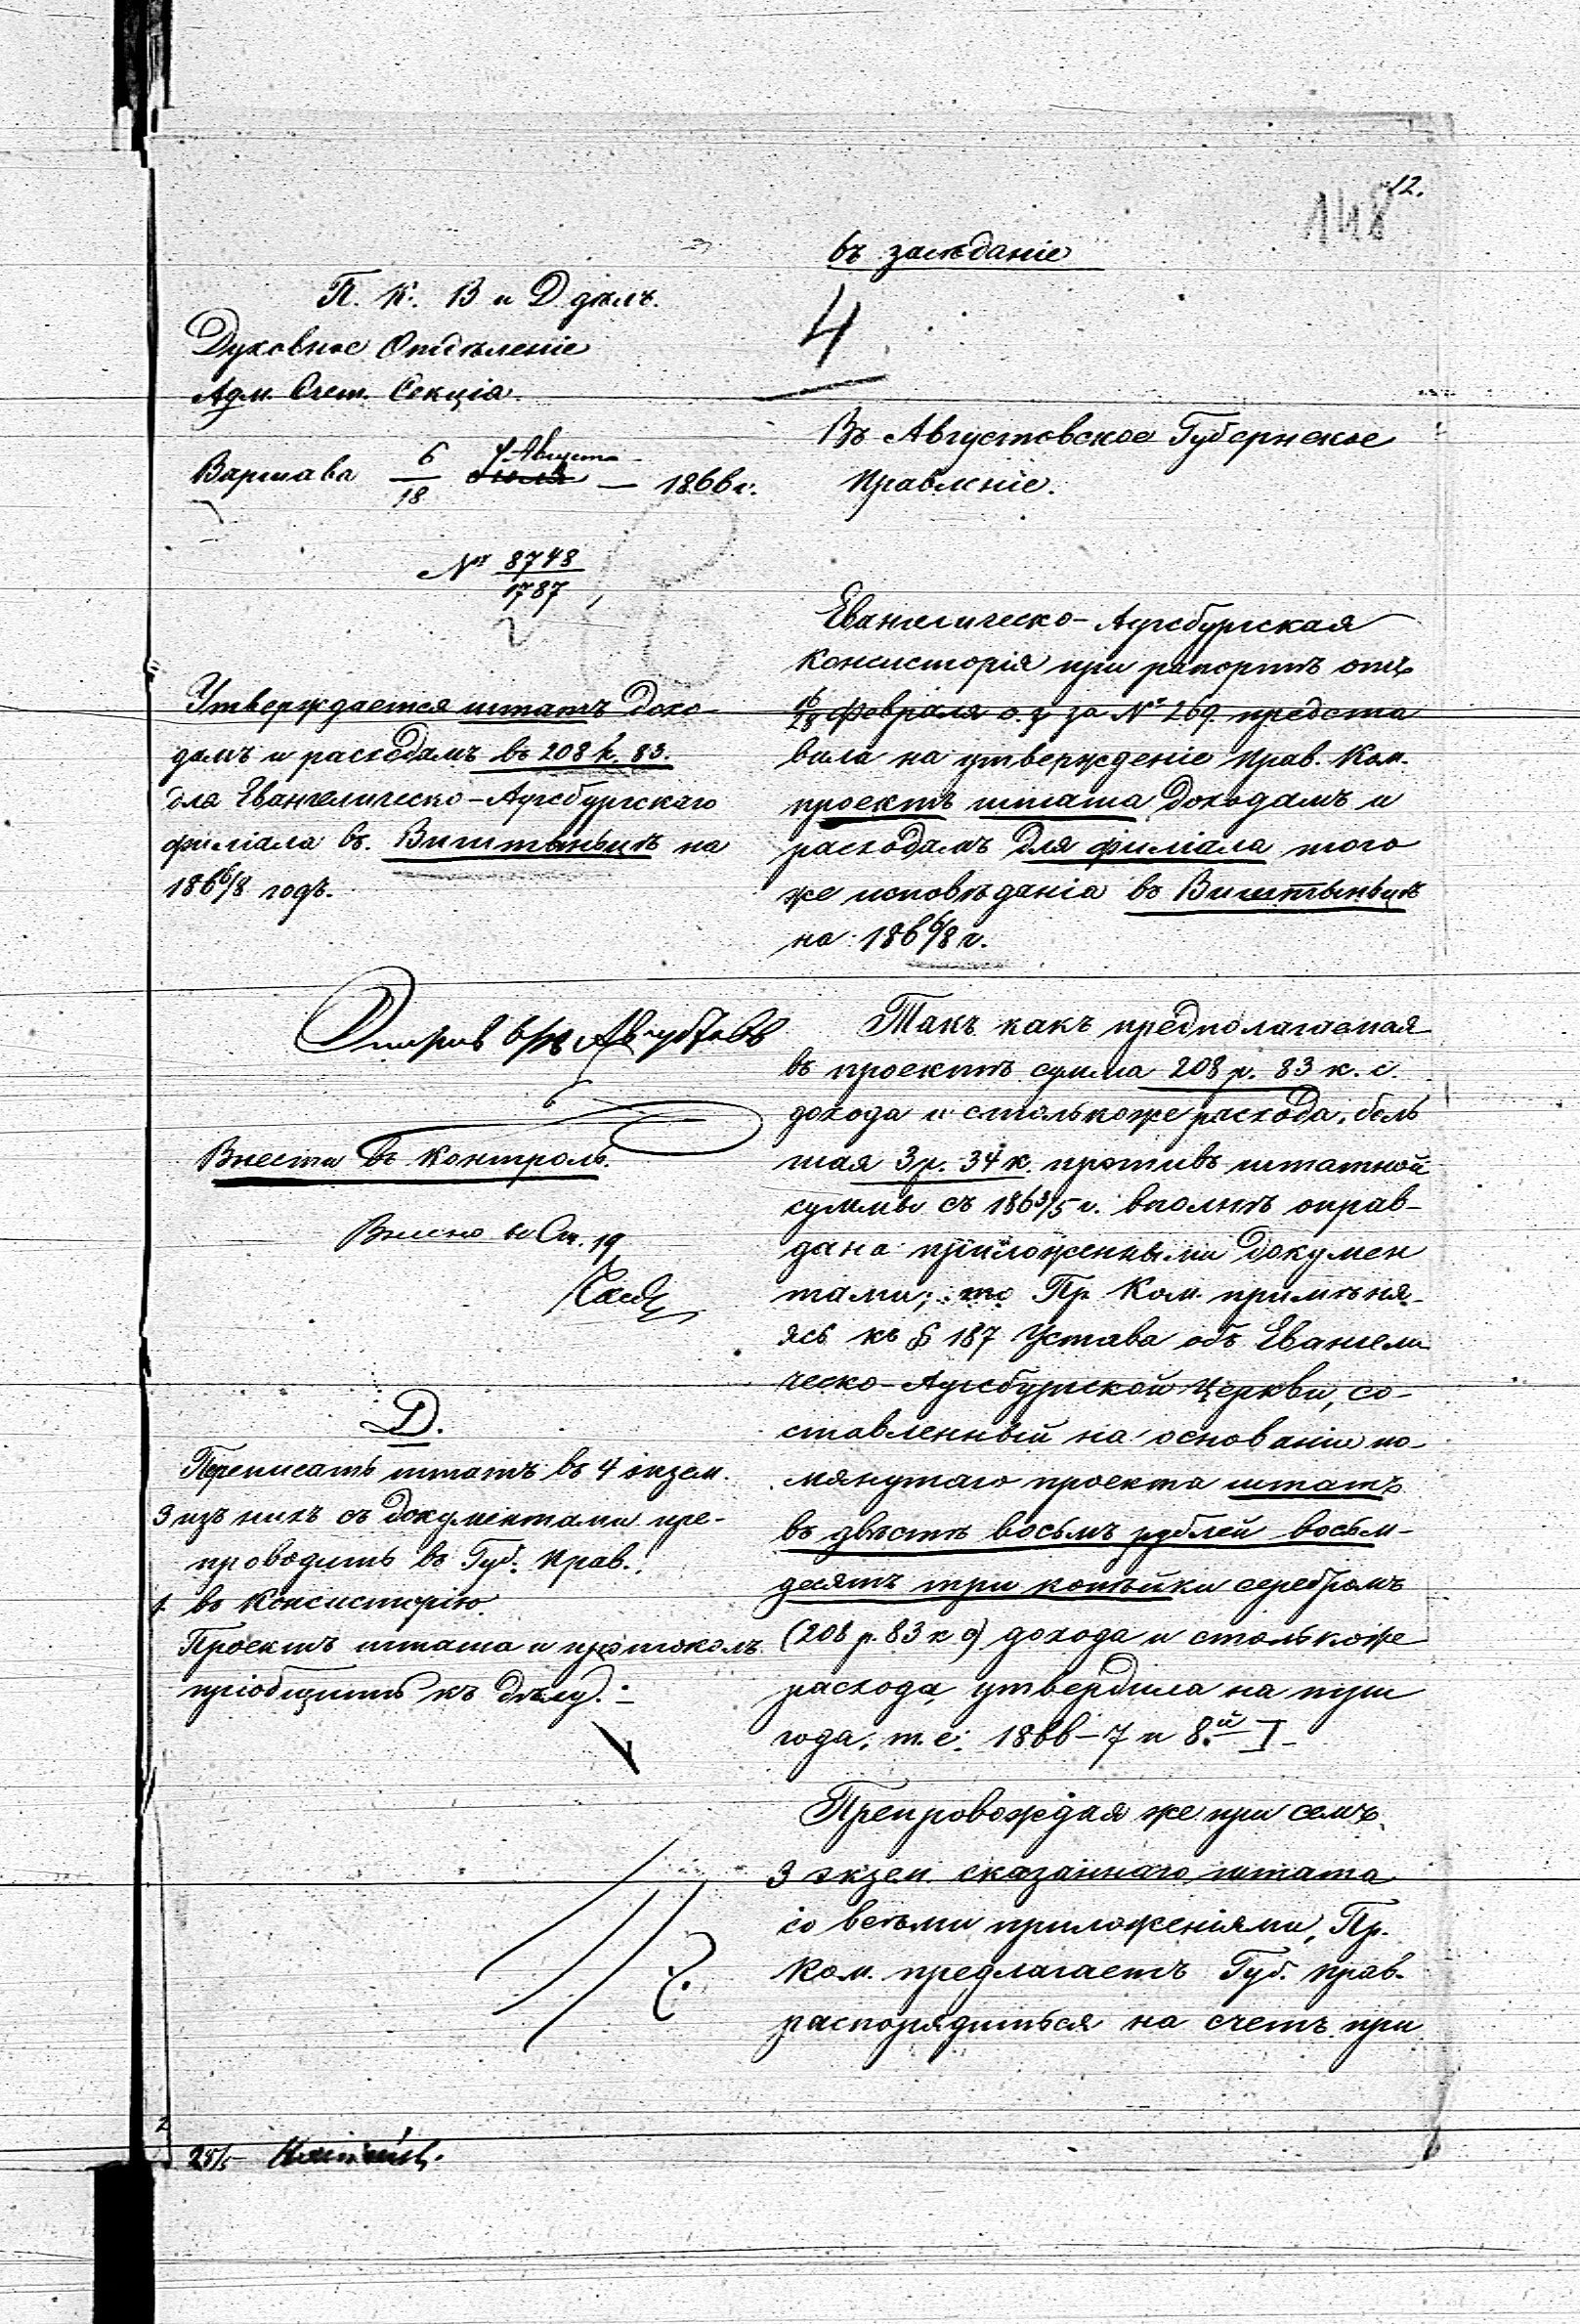 12.
148
въ засѣданіе
4
П. К. В и Д. дѣлъ.
Духовное Отдѣленіе
Адм. Счет. Секція.
Варшава 6/18 Августа — 1866 г.
№ 8748/1787
Утверждается штатъ дохо-
дамъ и расходамъ въ 208 р. 83.
для Евангелическо-Аугсбургскаго
филіала въ Виштынецѣ на
1866/8 годъ.
Августа 66
Внести въ контроль.
Внесено Ст. 19
D.
Переписать штатъ въ 4 экзем.
3 изъ нихъ съ документами пре-
проводить въ Губ. Прав.
1. въ Консисторію.
Проектъ штата и протоколъ
пріобщить къ дѣлу. –
Въ Августовское Губернское
Правленіе.
Евангелическо-Аугсбургская
Консисторія при рапортѣ отъ
16/28 Февраля с. г. за № 269 предста
вила на утвержденіе Прав. Ком.
проектъ штата доходамъ и
расходамъ для филіала того
же исповѣданія въ Виштынецѣ
на 1866/8 г.
Такъ какъ предполагаемая
въ проектѣ сумма 208 р. 83 к. с.
дохода и столькоже расхода, боль
шая 3 р. 34 к. противъ штатной
суммы съ 1863/5 г. вполнѣ оправ-
дана приложенными докумен
тами; то Пр. Ком. примѣня-
ясь къ § 187 Устава объ Евангели
ческо-Аугсбургской Церкви, со-
ставленный на основаніи по-
мянутаго проекта штатъ
въ двѣстѣ восьмъ рублей восьм-
десятъ три копѣйки серебромъ
(208 р. 83 к с) дохода и столькоже
расхода, утвердила на три
года, т. е: 1866–7 и 8.й
Препровождая же при семъ
3 экзем. сказаннаго штата
со всѣми приложеніями, Пр.
Ком. предлагаетъ Губ. Прав.
распорядиться на счетъ при